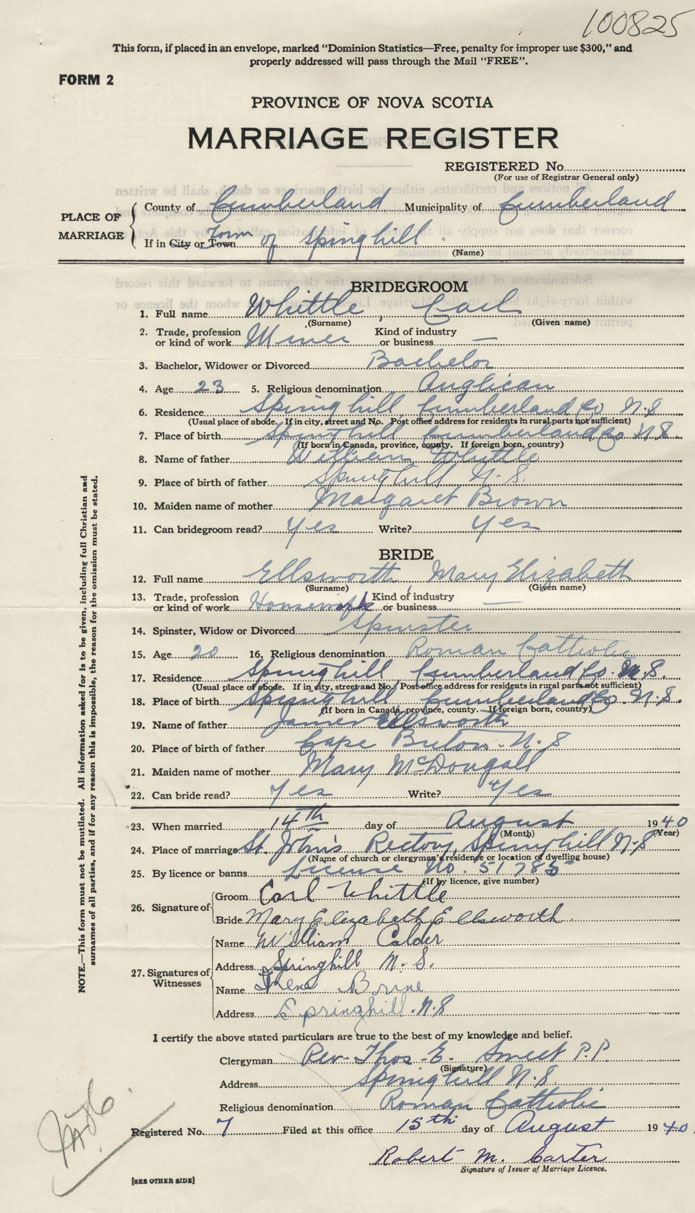 100825
This form, if placed in an envelope, marked "Dominion Statistics—Free, penalty for improper use $300," and
properly addressed will pass through the Mail "FREE".
FORM 2
PROVINCE OF NOVA SCOTIA
MARRIAGE REGISTER
REGISTERED No.
(For use of Registrar General only)
PLACE OF MARRIAGE
County of Cumberland Municipality of Cumberland
If in City or Town Town of Springhill
(Name)
BRIDEGROOM
1. Full name Whittle, Carl
(Surname) (Given name)
2. Trade, profession or kind of work Miner Kind of industry or business —
3. Bachelor, Widower or Divorced Bachelor
4. Age 23 5. Religious denomination Anglican
6. Residence Springhill Cumberland Co N.S
(Usual place of abode. If in city, street and No. Post office address for residents in rural parts not sufficient)
7. Place of birth Springhill Cumberland Co N.S.
(If born in Canada, province, county. If foreign born, country)
8. Name of father William Whittle
9. Place of birth of father Springhill N.S.
10. Maiden name of mother Margaret Brown
11. Can bridegroom read? Yes Write? Yes
BRIDE
12. Full name Ellsworth Mary Elizabeth
(Surname) (Given name)
13. Trade, profession or kind of work Housework Kind of industry or business —
14. Spinster, Widow or Divorced Spinster
15. Age 20 16. Religious denomination Roman Catholic
17. Residence Springhill Cumberland Co. N.S.
(Usual place of abode. If in city, street and No. Post office address for residents in rural parts not sufficient)
18. Place of birth Springhill Cumberland Co N.S.
(If born in Canada, province, county. If foreign born, country)
19. Name of father James Ellsworth
20. Place of birth of father Cape Breton N.S
21. Maiden name of mother Mary McDougall
22. Can bride read? Yes Write? Yes
23. When married 14th day of August 1940
(Month) (Year)
24. Place of marriage St. John's Rectory, Springhill N.S
(Name of church or clergyman's residence or location of dwelling house)
25. By licence or banns License No. 51785
(If by licence, give number)
26. Signature of
Groom Carl Whittle
Bride Mary Elizabeth Ellsworth
27. Signatures of Witnesses
Name William Calder
Address Springhill N.S.
Name Irene Brine
Address Springhill N.S
I certify the above stated particulars are true to the best of my knowledge and belief.
Clergyman Rev. Thos. E. Sweet P.P.
(Signature)
Address Springhill N.S.
Religious denomination Roman Catholic
Registered No. 7 Filed at this office 15th day of August 1940
Robert M. Carter
Signature of Issuer of Marriage Licence.
[SEE OTHER SIDE]
NOTE.—This form must not be mutilated. All information asked for is to be given, including full Christian and
surnames of all parties, and if for any reason this is impossible, the reason for the omission must be stated.